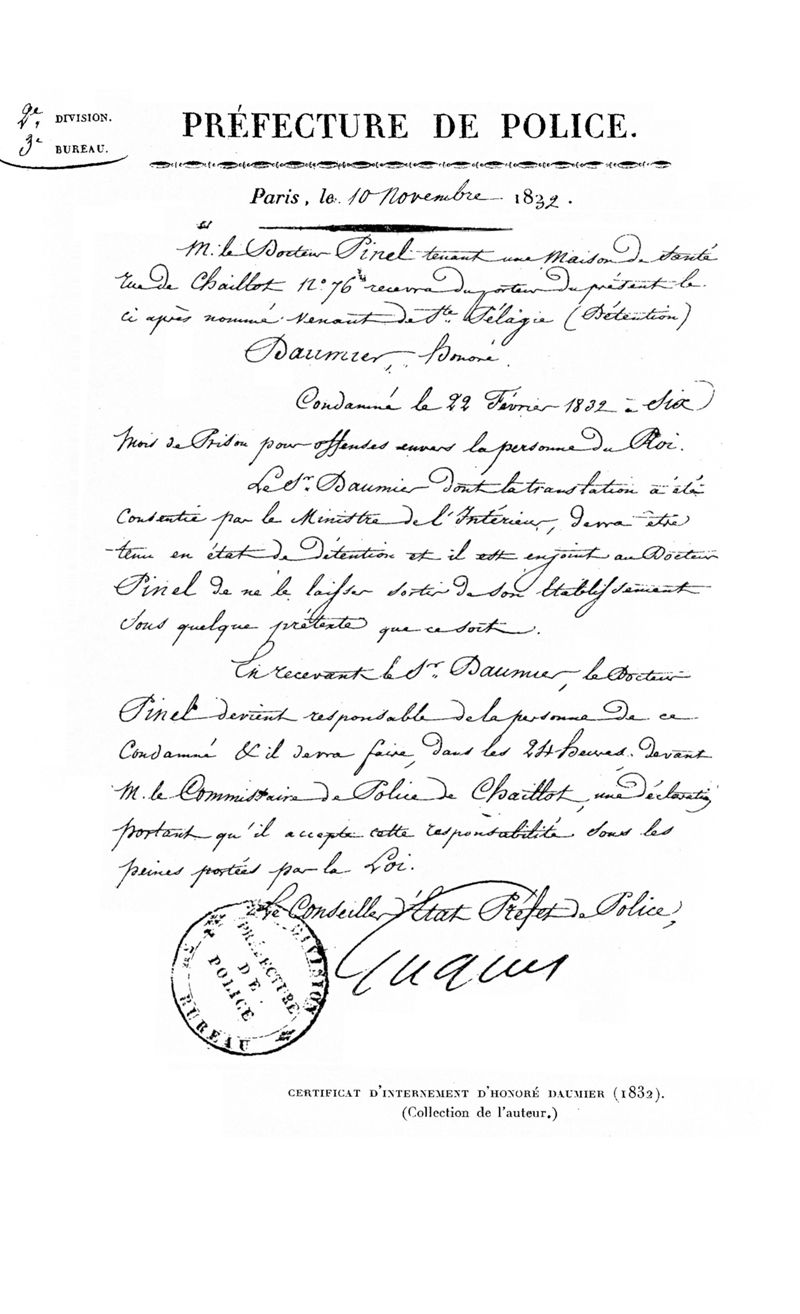 2e. DIVISION.
3e BUREAU.
PRÉFECTURE DE POLICE.
Paris, le 10 Novembre 1832.
M. le Docteur Pinel tenant une Maison de Santé
rue de Chaillot N° 76 recevra du porteur du présent le
ci après nommé venant de Ste Pélagie (Détention)
Daumier, honoré.
Condamné le 22 Février 1832 à Six
mois de Prison pour offenses envers la personne du Roi.
Le Sr. Daumier dont la translation a été
Consentie par le Ministre de l'Intérieur, devra être
tenu en état de détention et il est enjoint au Docteur
Pinel de ne le laisser sortir de son Etablissement
sous quelque prétexte que ce soit.
En recevant le Sr. Daumier, le Docteur
Pinel devient responsable de la personne de ce
Condamné & il devra faire, dans les 24 heures. devant
M. le Commissaire de Police de Chaillot, une déclaration
portant qu'il accepte cette responsabilité sous les
peines portées par la Loi.
Le Conseiller d'État Préfet de Police,
DIVISION
PRÉFECTURE
DE
POLICE
BUREAU
CERTIFICAT D'INTERNEMENT D'HONORÉ DAUMIER (1832).
(Collection de l'auteur.)